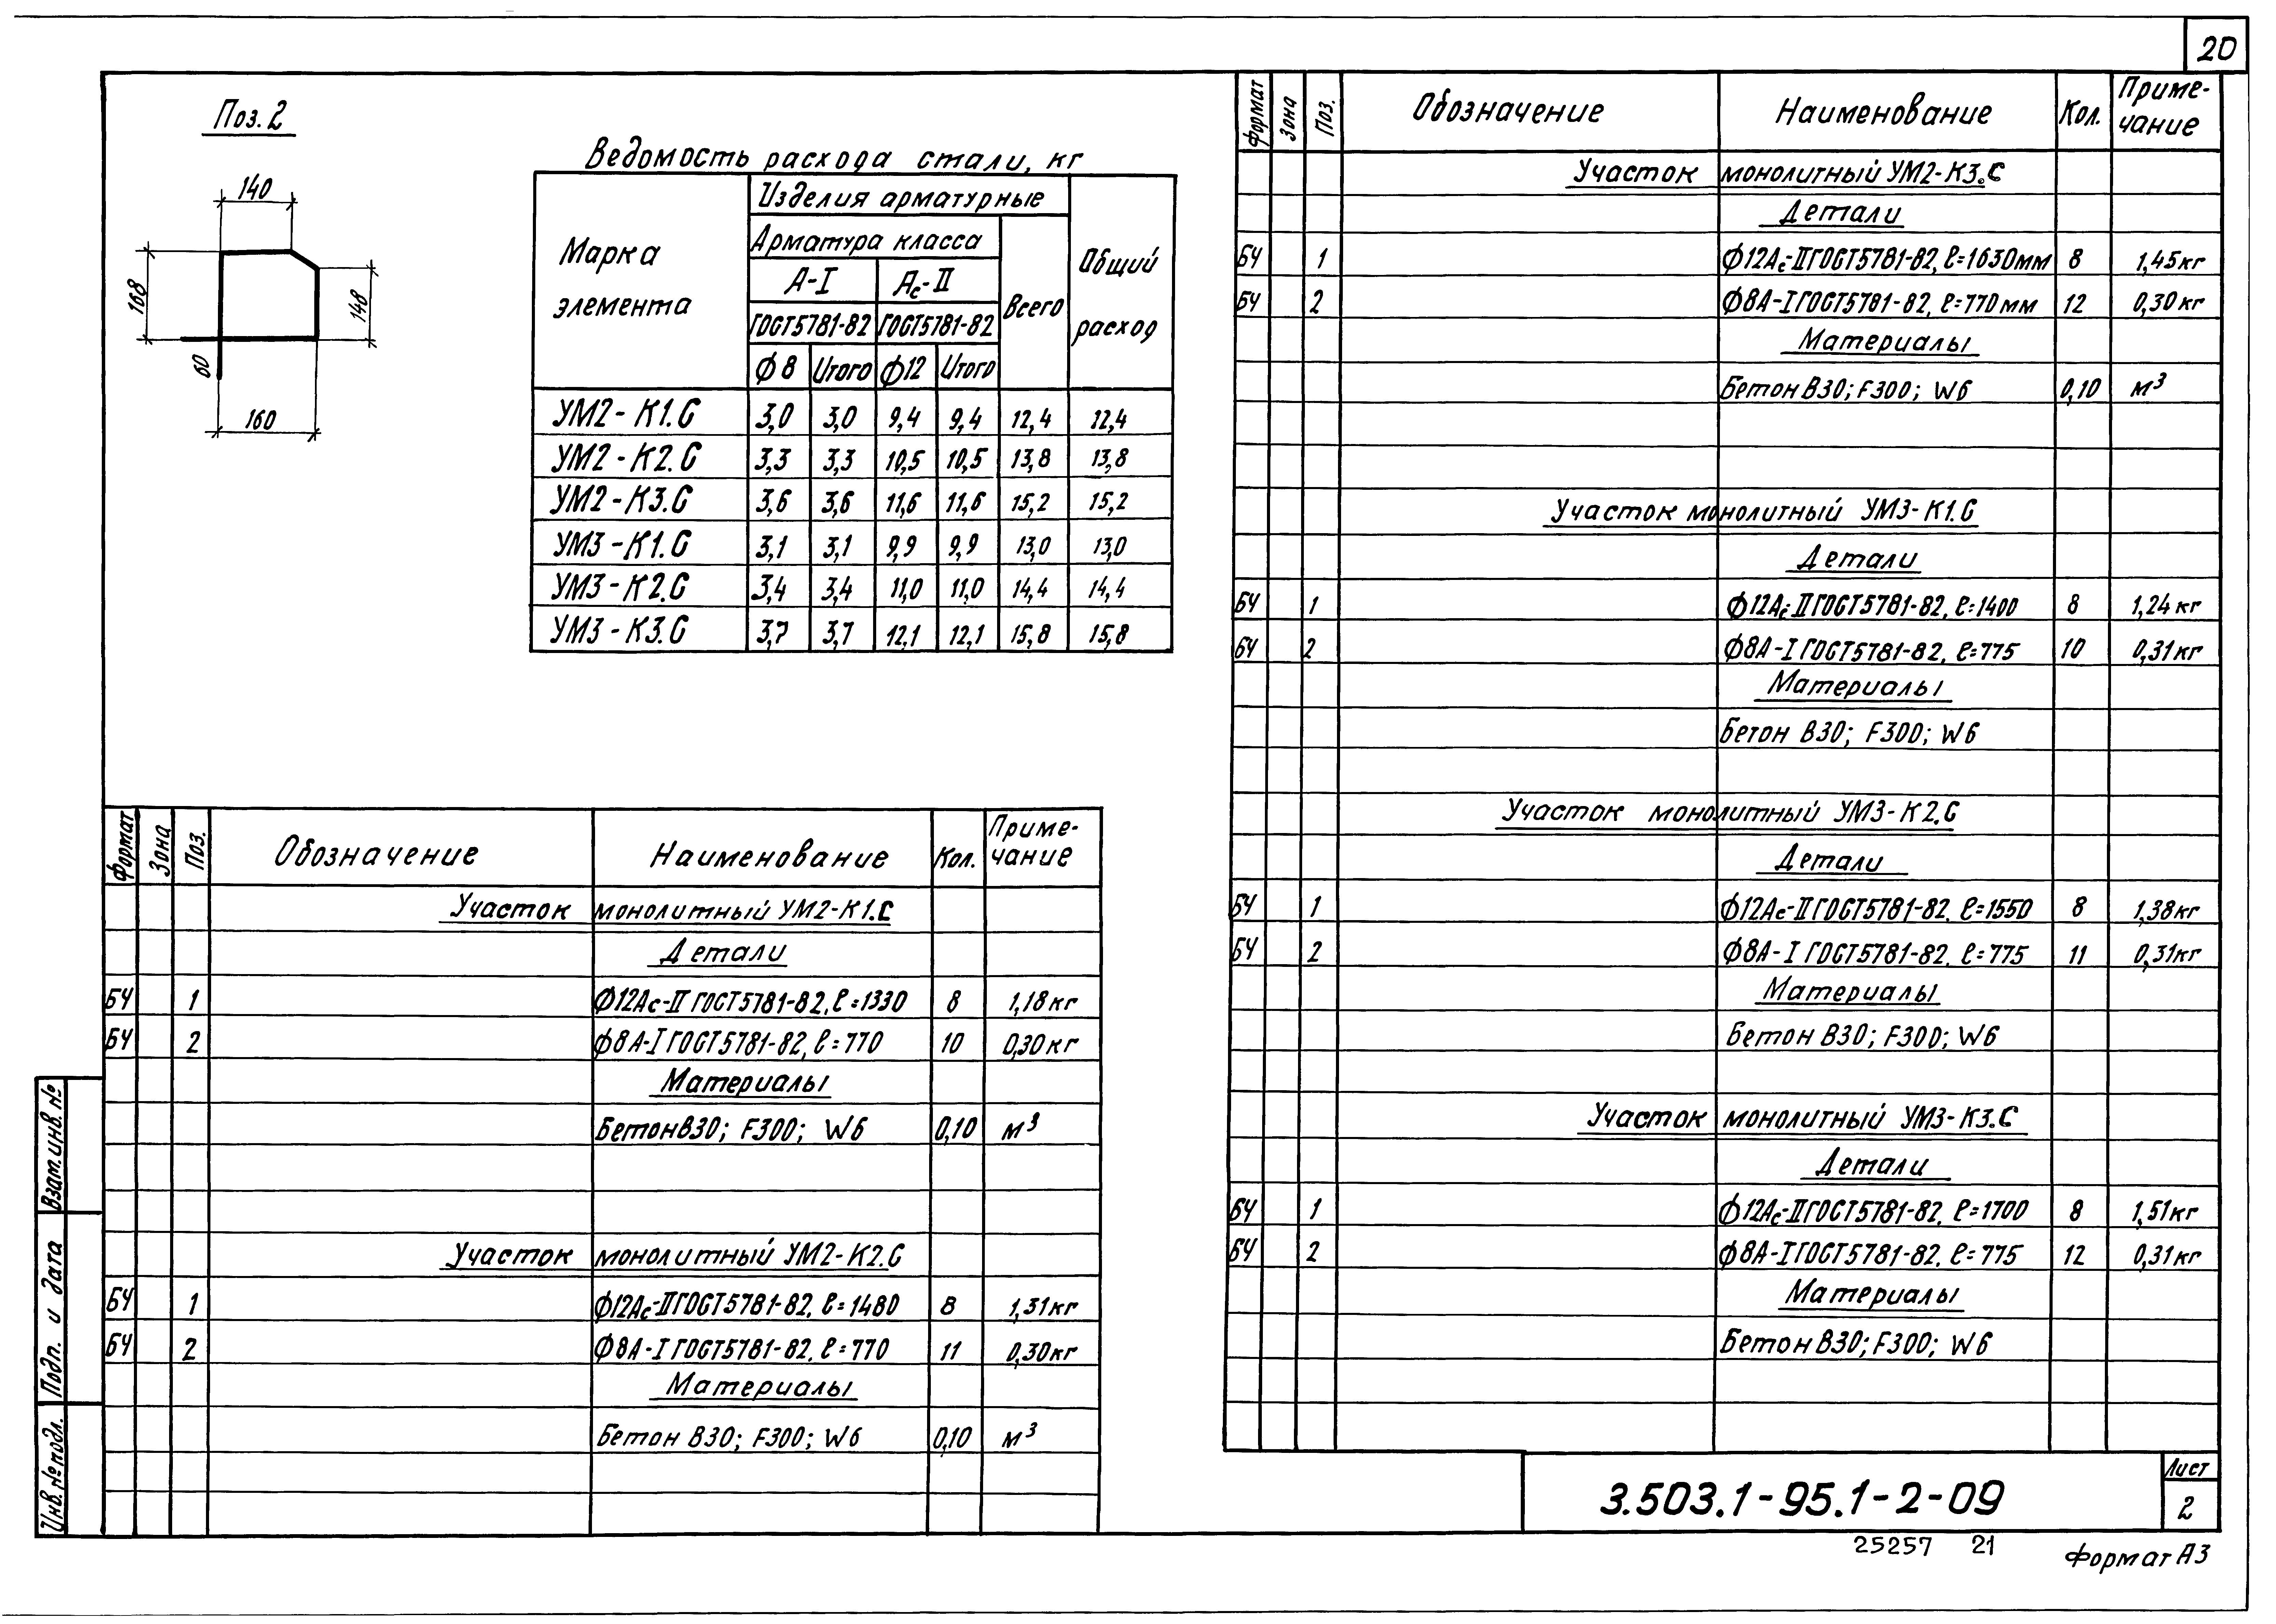 20
Поз. 2
140
168
148
60
160
Ведомость расхода стали, кг
Марка элемента
Изделия арматурные
Общий расход
Арматура класса
Всего
А-I
Ас-II
ГОСТ5781-82
ГОСТ5781-82
Ф8
Итого
Ф12
Итого
УМ2-К1.С 3,0 3,0 9,4 9,4 12,4 12,4
УМ2-К2.С 3,3 3,3 10,5 10,5 13,8 13,8
УМ2-К3.С 3,6 3,6 11,6 11,6 15,2 15,2
УМ3-К1.С 3,1 3,1 9,9 9,9 13,0 13,0
УМ3-К2.С 3,4 3,4 11,0 11,0 14,4 14,4
УМ3-К3.С 3,7 3,7 12,1 12,1 15,8 15,8
Формат Зона Поз. Обозначение Наименование Кол. Приме-
чание
Участок монолитный УМ2-К1.С
Детали
БЧ 1 Ф12Ас-II ГОСТ5781-82, ℓ=1330 8 1,18кг
БЧ 2 Ф8А-I ГОСТ5781-82, ℓ=770 10 0,30кг
Материалы
Бетон В30; F300; W6 0,10 м³
Участок монолитный УМ2-К2.С
БЧ 1 Ф12Ас-II ГОСТ5781-82, ℓ=1480 8 1,31кг
БЧ 2 Ф8А-I ГОСТ5781-82, ℓ=770 11 0,30кг
Материалы
Бетон В30; F300; W6 0,10 м³
Формат Зона Поз. Обозначение Наименование Кол. Приме-
чание
Участок монолитный УМ2-К3.С
Детали
БЧ 1 Ф12Ас-II ГОСТ5781-82, ℓ=1630мм 8 1,45кг
БЧ 2 Ф8А-I ГОСТ5781-82, ℓ=770мм 12 0,30кг
Материалы
Бетон В30; F300; W6 0,10 м³
Участок монолитный УМ3-К1.С
Детали
БЧ 1 Ф12Ас-II ГОСТ5781-82, ℓ=1400 8 1,24кг
БЧ 2 Ф8А-I ГОСТ5781-82, ℓ=775 10 0,31кг
Материалы
Бетон В30; F300; W6
Участок монолитный УМ3-К2.С
Детали
БЧ 1 Ф12Ас-II ГОСТ5781-82, ℓ=1550 8 1,38кг
БЧ 2 Ф8А-I ГОСТ5781-82, ℓ=775 11 0,31кг
Материалы
Бетон В30; F300; W6
Участок монолитный УМ3-К3.С
Детали
БЧ 1 Ф12Ас-II ГОСТ5781-82, ℓ=1700 8 1,51кг
БЧ 2 Ф8А-I ГОСТ5781-82, ℓ=775 12 0,31кг
Материалы
Бетон В30; F300; W6
Взам.инв.№
Подп. и дата
Инв.№подл.
3.503.1-95.1-2-09
Лист
2
25257 21
Формат А3